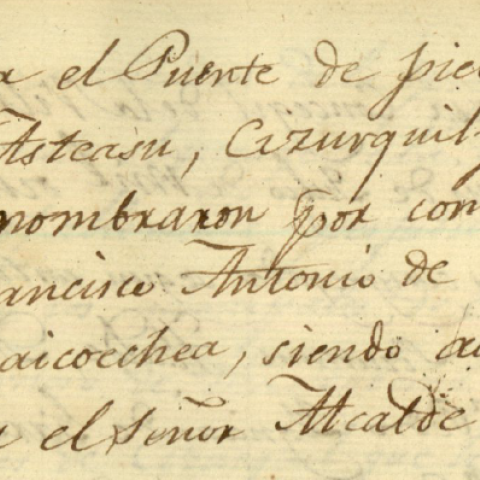 a el Puente de pie
Asteasu, Cizurquil
nombraron por com
ancisco Antonio de
aicoechea, siendo a
a el Señor Alcalde